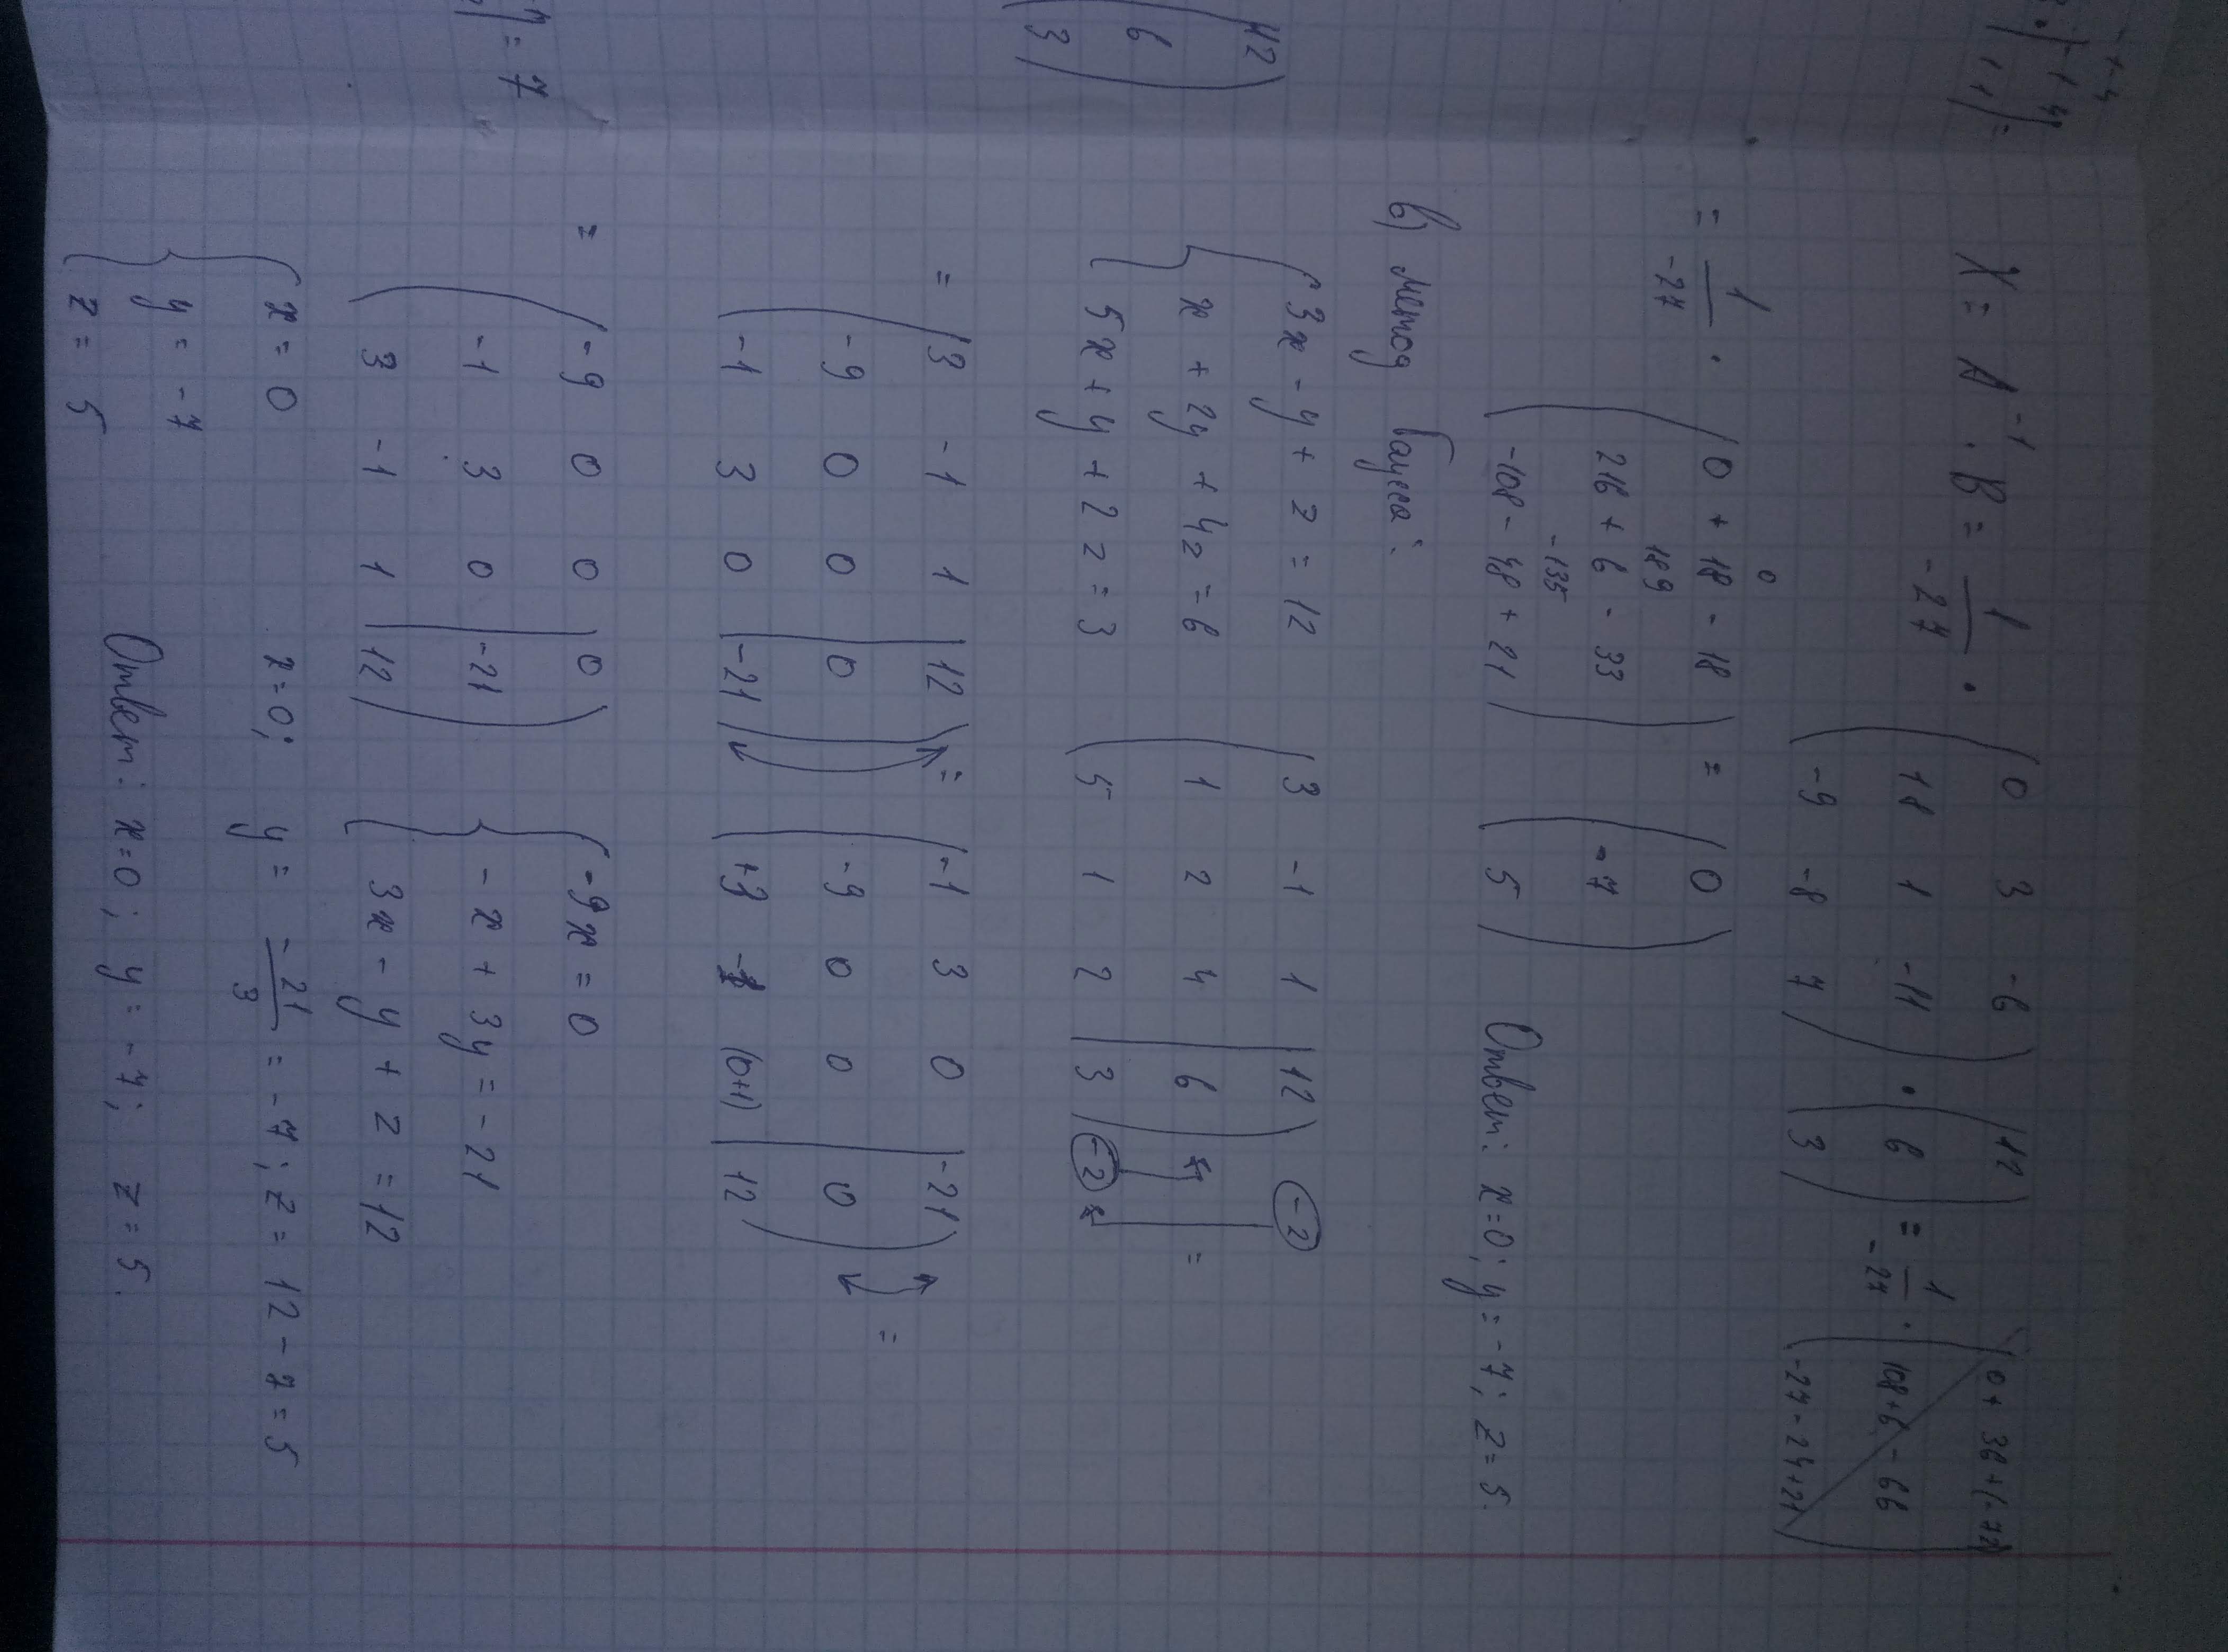 X = A⁻¹ · B = 1/-27 · (0 3 -6; 18 1 -11; -9 -8 7) · (12; 6; 3) = 1/-27 · (0 + 36 + (-72); 108+6 - 66; -27 - 24 + 21)
= 1/-27 · (0 + 18 - 18; 216 + 6 - 33; -108 - 48 + 21) = (0; -7; 5)
0
189
-135
Ответ: x=0; y=-7; z=5.
в) метод Гаусса:
3x - y + z = 12
x + 2y + 4z = 6
5x + y + 2z = 3
3 -1 1 | 12 -2
1 2 4 | 6 =
5 1 2 | 3 -2
= 3 -1 1 | 12 =
-9 0 0 | 0
-1 3 0 | -21
-1 3 0 | -21
-9 0 0 | 0 =
+3 -1 (0+1) | 12
= -9 0 0 | 0
-1 3 0 | -21
3 -1 1 | 12
-9x = 0
-x + 3y = -21
3x - y + z = 12
x = 0
y = -7
z = 5
x=0; y = -21/3 = -7; z = 12 - 7 = 5
Ответ: x=0; y=-7; z=5.
12
6
3
= 7